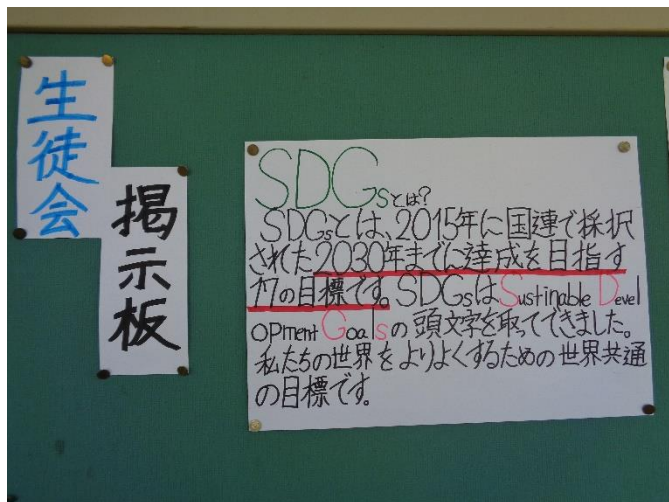 生徒会
掲示板
SDGsとは?
SDGsとは、2015年に国連で採択
された2030年までに達成を目指す
17の目標です。SDGsはSustinable Devel
opment Goalsの頭文字を取ってできました。
私たちの世界をよりよくするための世界共通
の目標です。